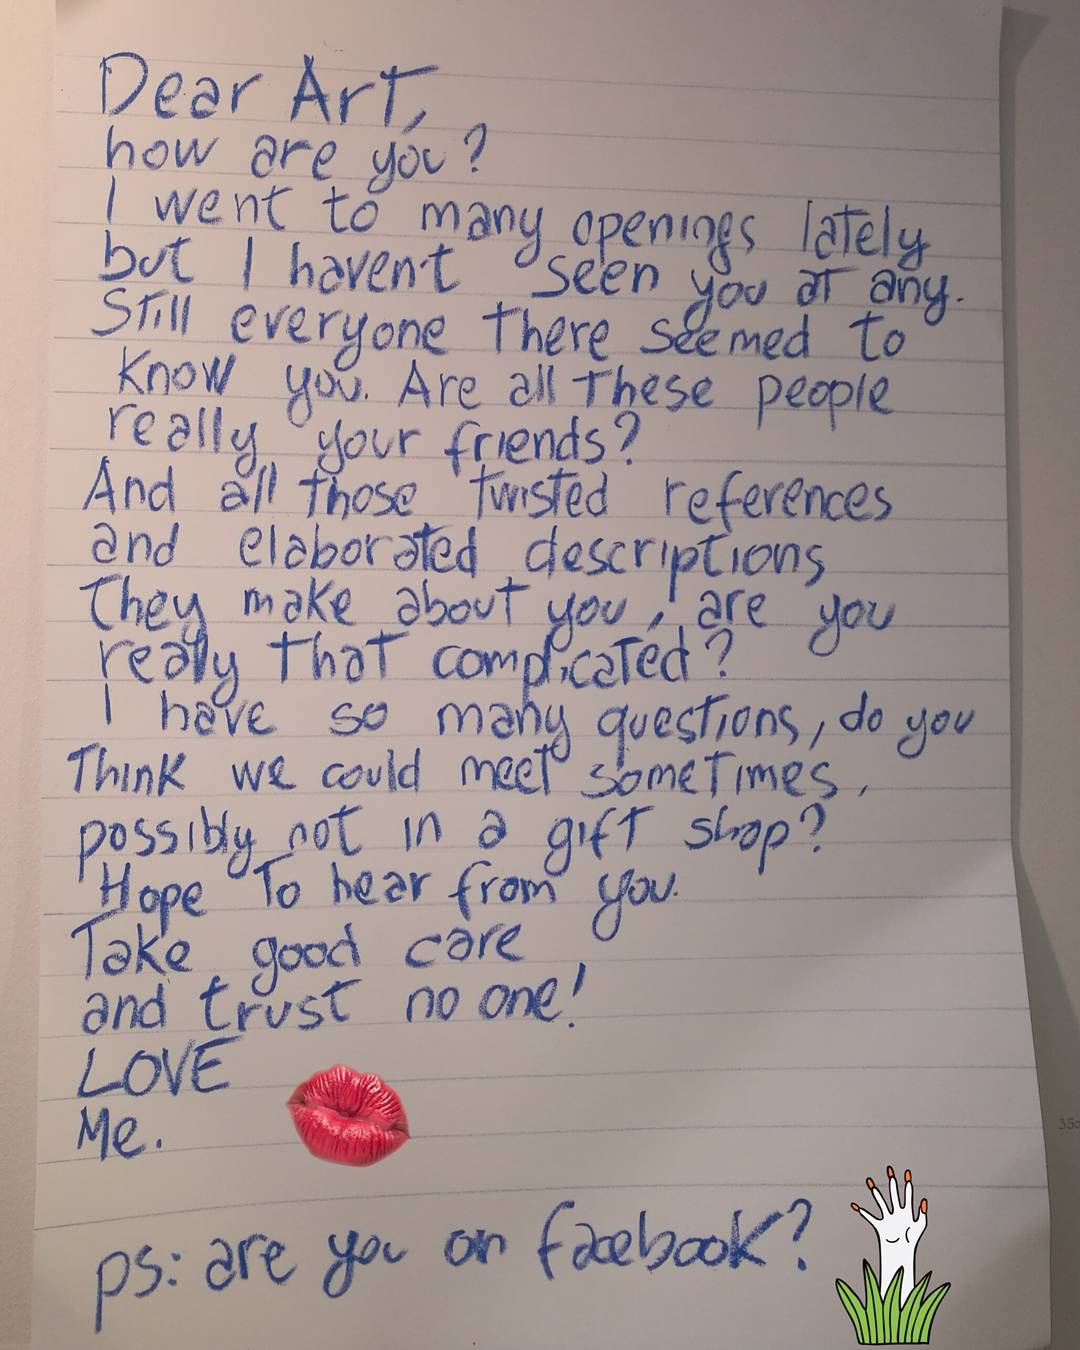 Dear Art,
how are you?
I went to many openings lately
but I haven't seen you at any.
Still everyone there seemed to
know you. Are all these people
really your friends?
And all those twisted references
and elaborated descriptions
they make about you, are you
really that complicated?
I have so many questions, do you
think we could meet sometimes,
possibly not in a gift shop?
Hope to hear from you.
Take good care
and trust no one!
LOVE
Me.
ps: are you on facebook?